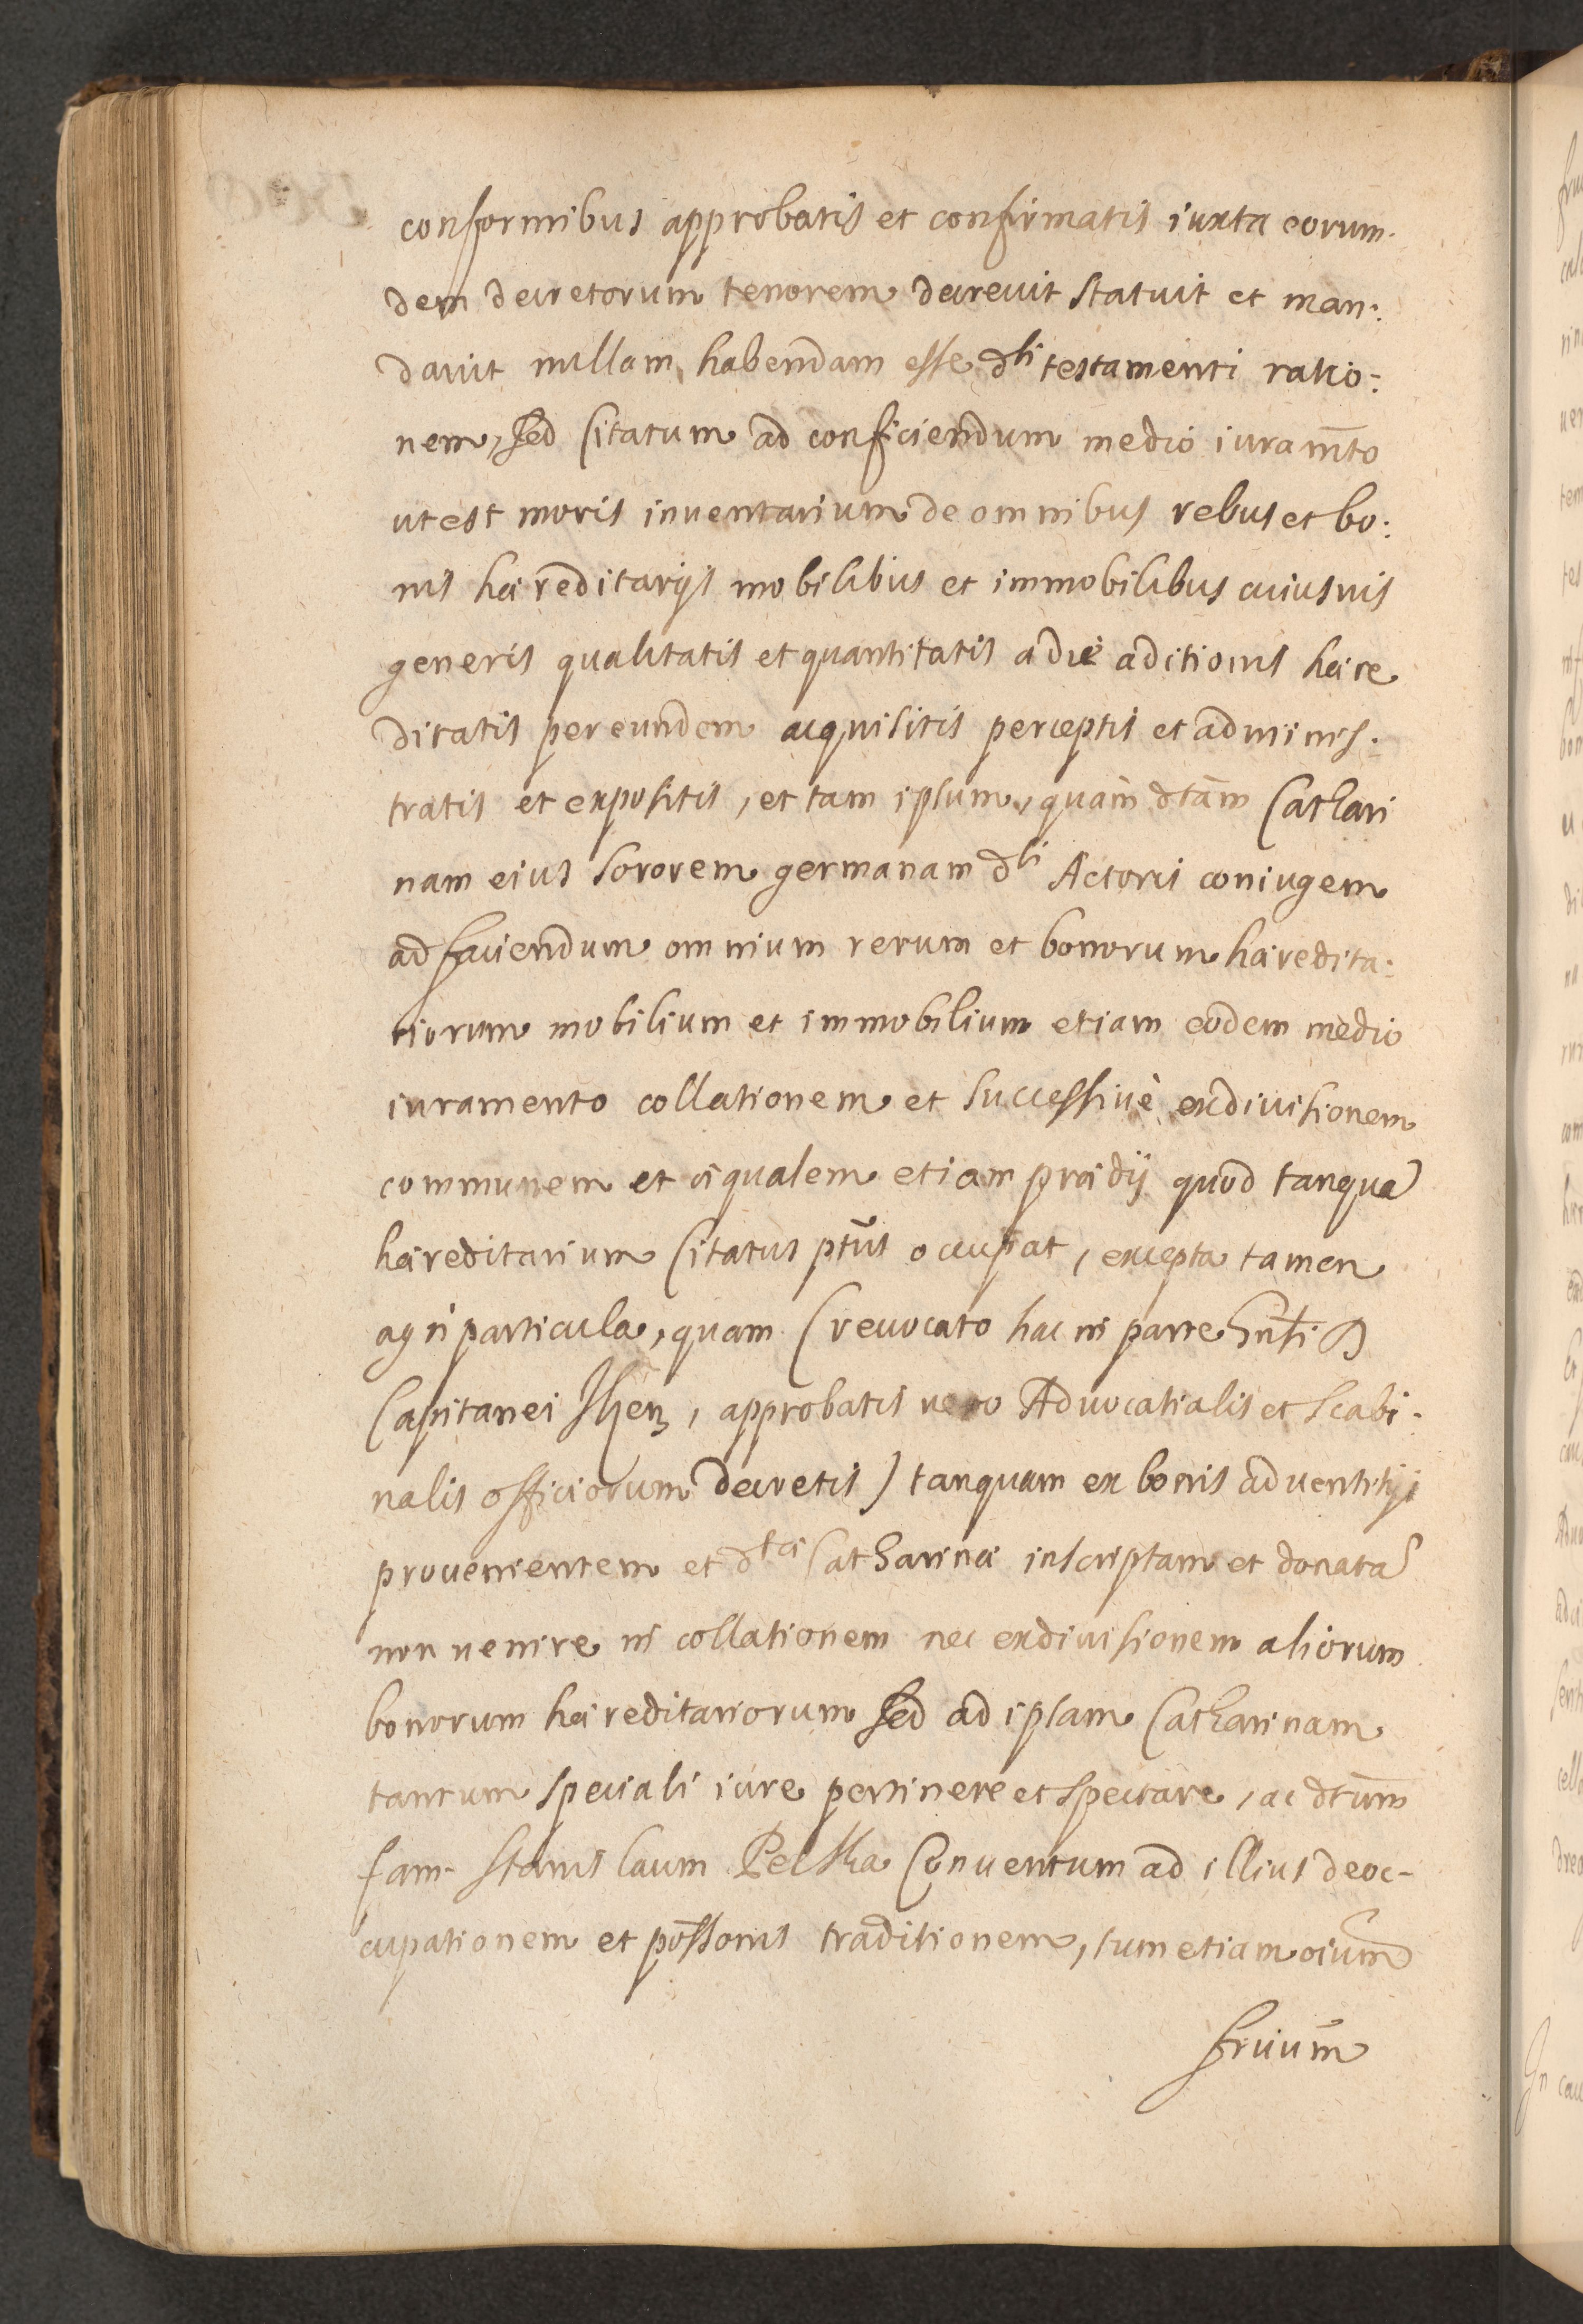 conformibus approbatis et confirmatis iuxta eorum-
dem decretorum tenorem decreuit statuit et man-:
dauit nullam habendam esse dti testamenti ratio-:
nem, sed Citatum ad conficiendum medio iuram̄to
ut est moris inuentarium de omnibus rebus et bo:
nis hæreditarijs mobilibus et immobilibus cuiusuis
generis qualitatis et quantitatis a die aditionis hære
ditatis per eundem acquisitis perceptis et adminis-:
tratis et expositis, et tam ipsum, quam dtām Cathari
nam eius sororem germanam dti Actoris coniugem
ad faciendum omnium rerum et bonorum hæredita:
riorum mobilium et immobilium etiam eodem medio
iuramento collationem et successiuè exdiuisionem
communem et æqualem etiam prædij quod tanqua
hæreditarium Citatus pt̄us occupat, excepta tamen
agri particula, quam (reuocato hac in parte Snt̄i D
Capitanei Ihen, approbatis uero Aduocatialis et Scabi-
nalis officiorum decretis) tanquam ex bonis aduentitijs
prouenientem et dtæ Catharinæ inscriptam et donata
non uenire in collationem nec exdiuisionem aliorum
bonorum hæreditariorum sed ad ipsam Catharinam
tantum speciali iure pertinere et spectare, ac dtūm
fam. Stanislaum Pelka Conuentum ad illius deoc-
cupationem et poss̄onis traditionem, tum etiam oiūm
fruuūm